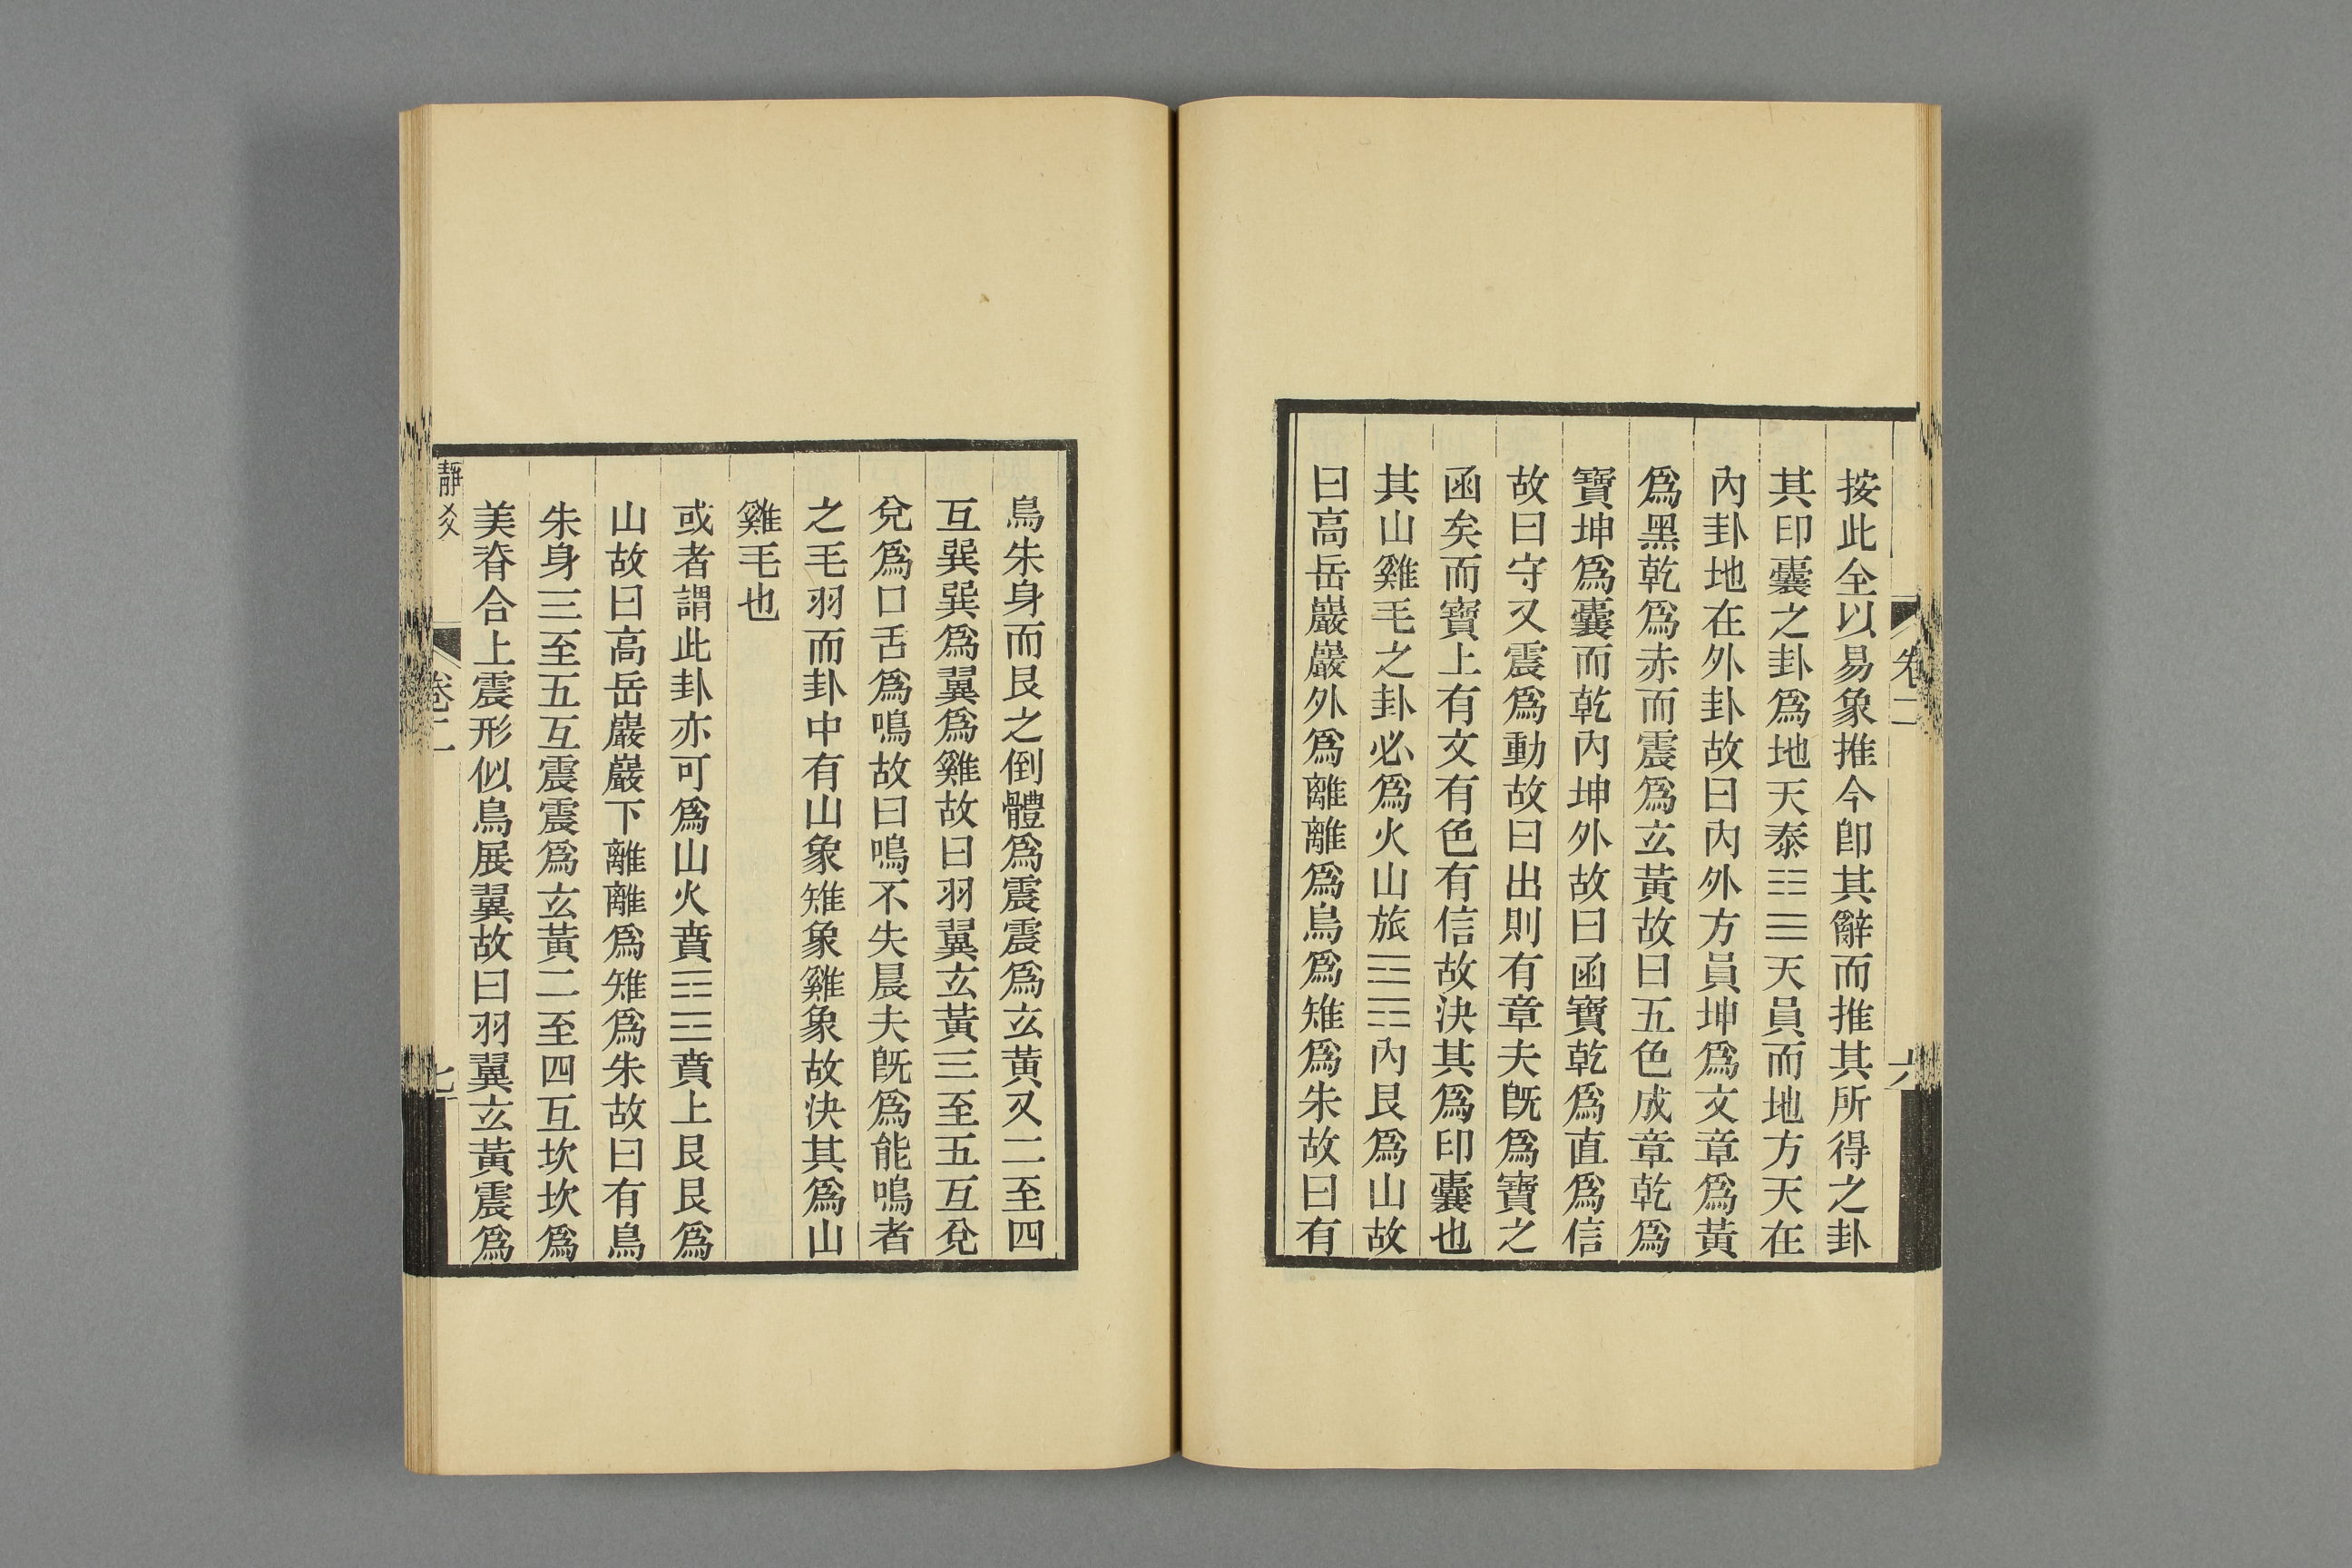 按此全以易象推今卽其辭而推其所得之卦
其印囊之卦爲地天泰䷊天員而地方天在
內卦地在外卦故曰內外方員坤爲文章爲黃
爲黑乾爲赤而震爲玄黃故曰五色成章乾爲
寶坤爲囊而乾內坤外故曰函寶乾爲直爲信
故曰守又震爲動故曰出則有章夫旣爲寶之
函矣而寶上有文有色有信故決其爲印囊也
其山雞毛之卦必爲火山旅䷷內艮爲山故
曰高岳巖巖外爲離離爲鳥爲雉爲朱故曰有
卷二
六
鳥朱身而艮之倒體爲震震爲玄黃又二至四
互巽巽爲翼爲雞故曰羽翼玄黃三至五互兌
兌爲口舌爲鳴故曰鳴不失晨夫旣爲能鳴者
之毛羽而卦中有山象雉象雞象故決其爲山
雞毛也
或者謂此卦亦可爲山火賁䷕賁上艮艮爲
山故曰高岳巖巖下離離爲雉爲朱故曰有鳥
朱身三至五互震震爲玄黃二至四互坎坎爲
美脊合上震形似鳥展翼故曰羽翼玄黃震爲
靜爻
卷二
七